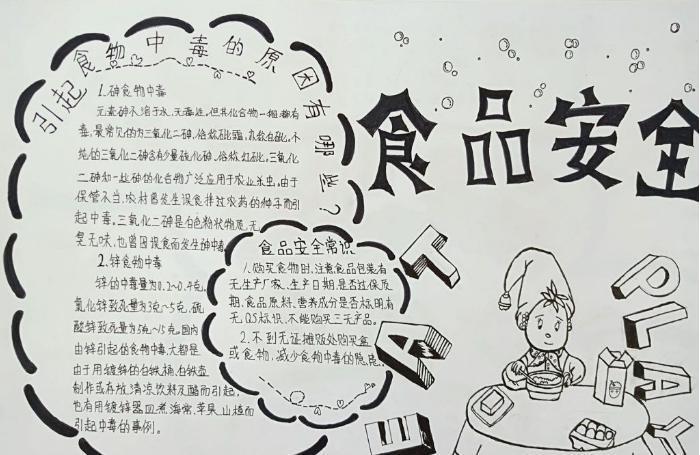 引起食物中毒的原因有哪些?
1.砷食物中毒
元素砷不溶于水,无毒性。但其化合物一般都有
毒,最常见的为三氧化二砷,俗称砒霜,亦称白砒。不
纯的三氧化二砷含有少量硫化砷,俗称红砒。三氧化
二砷和一些砷的化合物广泛应用于农业杀虫。由于
保管不当,农村曾发生误食拌过农药的种子而引
起中毒。三氧化二砷是白色粉状物质,无
臭无味,也曾因误食而发生砷中毒
2.锌食物中毒
锌的中毒量为0.2~0.4克。
氯化锌致死量为3克~5克,硫
酸锌致死量为5克~15克。国内
由锌引起的食物中毒,大都是
由于用镀锌的白铁桶、白铁壶
制作或存放清凉饮料及醋而引起,
也有用镀锌器皿煮海棠、苹果、山楂而
引起中毒的事例。
食品安全常识
1.购买食物时,注意食品包装有
无生产厂家、生产日期,是否过保质
期,食品原料、营养成分是否标明,有
无QS标识,不能购买三无产品。
2.不到无证摊贩处购买盒
或食物,减少食物中毒的隐患。
食品安全
EAT
PLAY